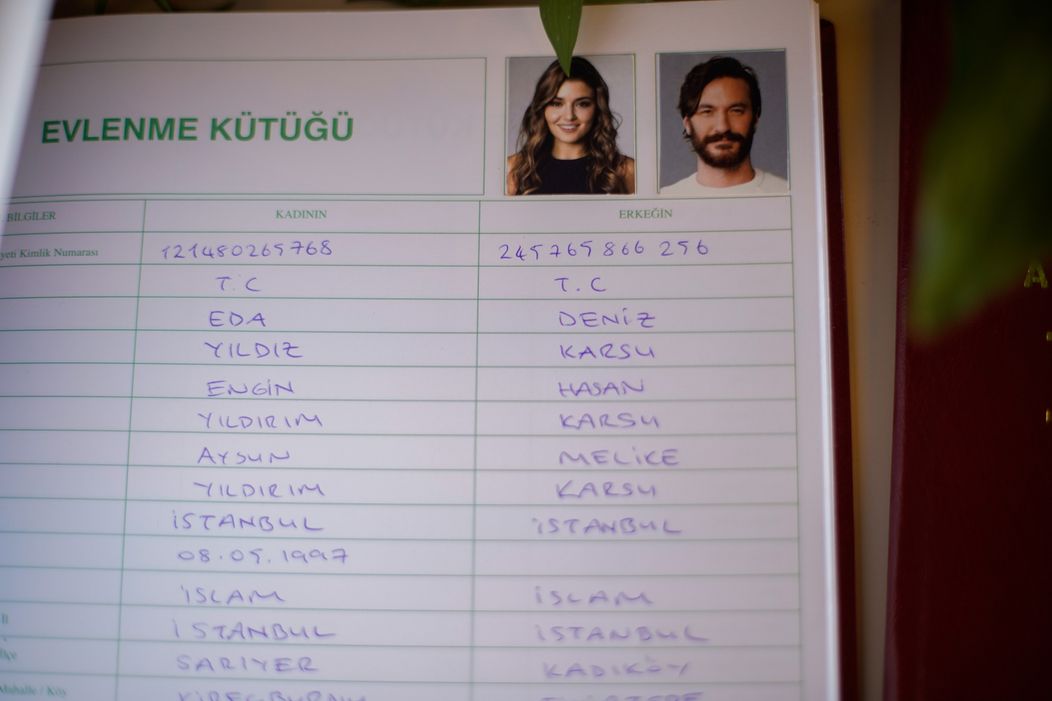 EVLENME KÜTÜĞÜ
BİLGİLER KADININ ERKEĞİN
Kimlik Numarası 121480265768 245765866 256
T.C T.C
EDA DENİZ
YILDIZ KARSU
ENGİN HASAN
YILDIRIM KARSU
AYSUN MELİKE
YILDIRIM KARSU
İSTANBUL İSTANBUL
08.09.1997
İSLAM İSLAM
İl İSTANBUL İSTANBUL
SARIYER KADIKÖY
Mahalle / Köy
A